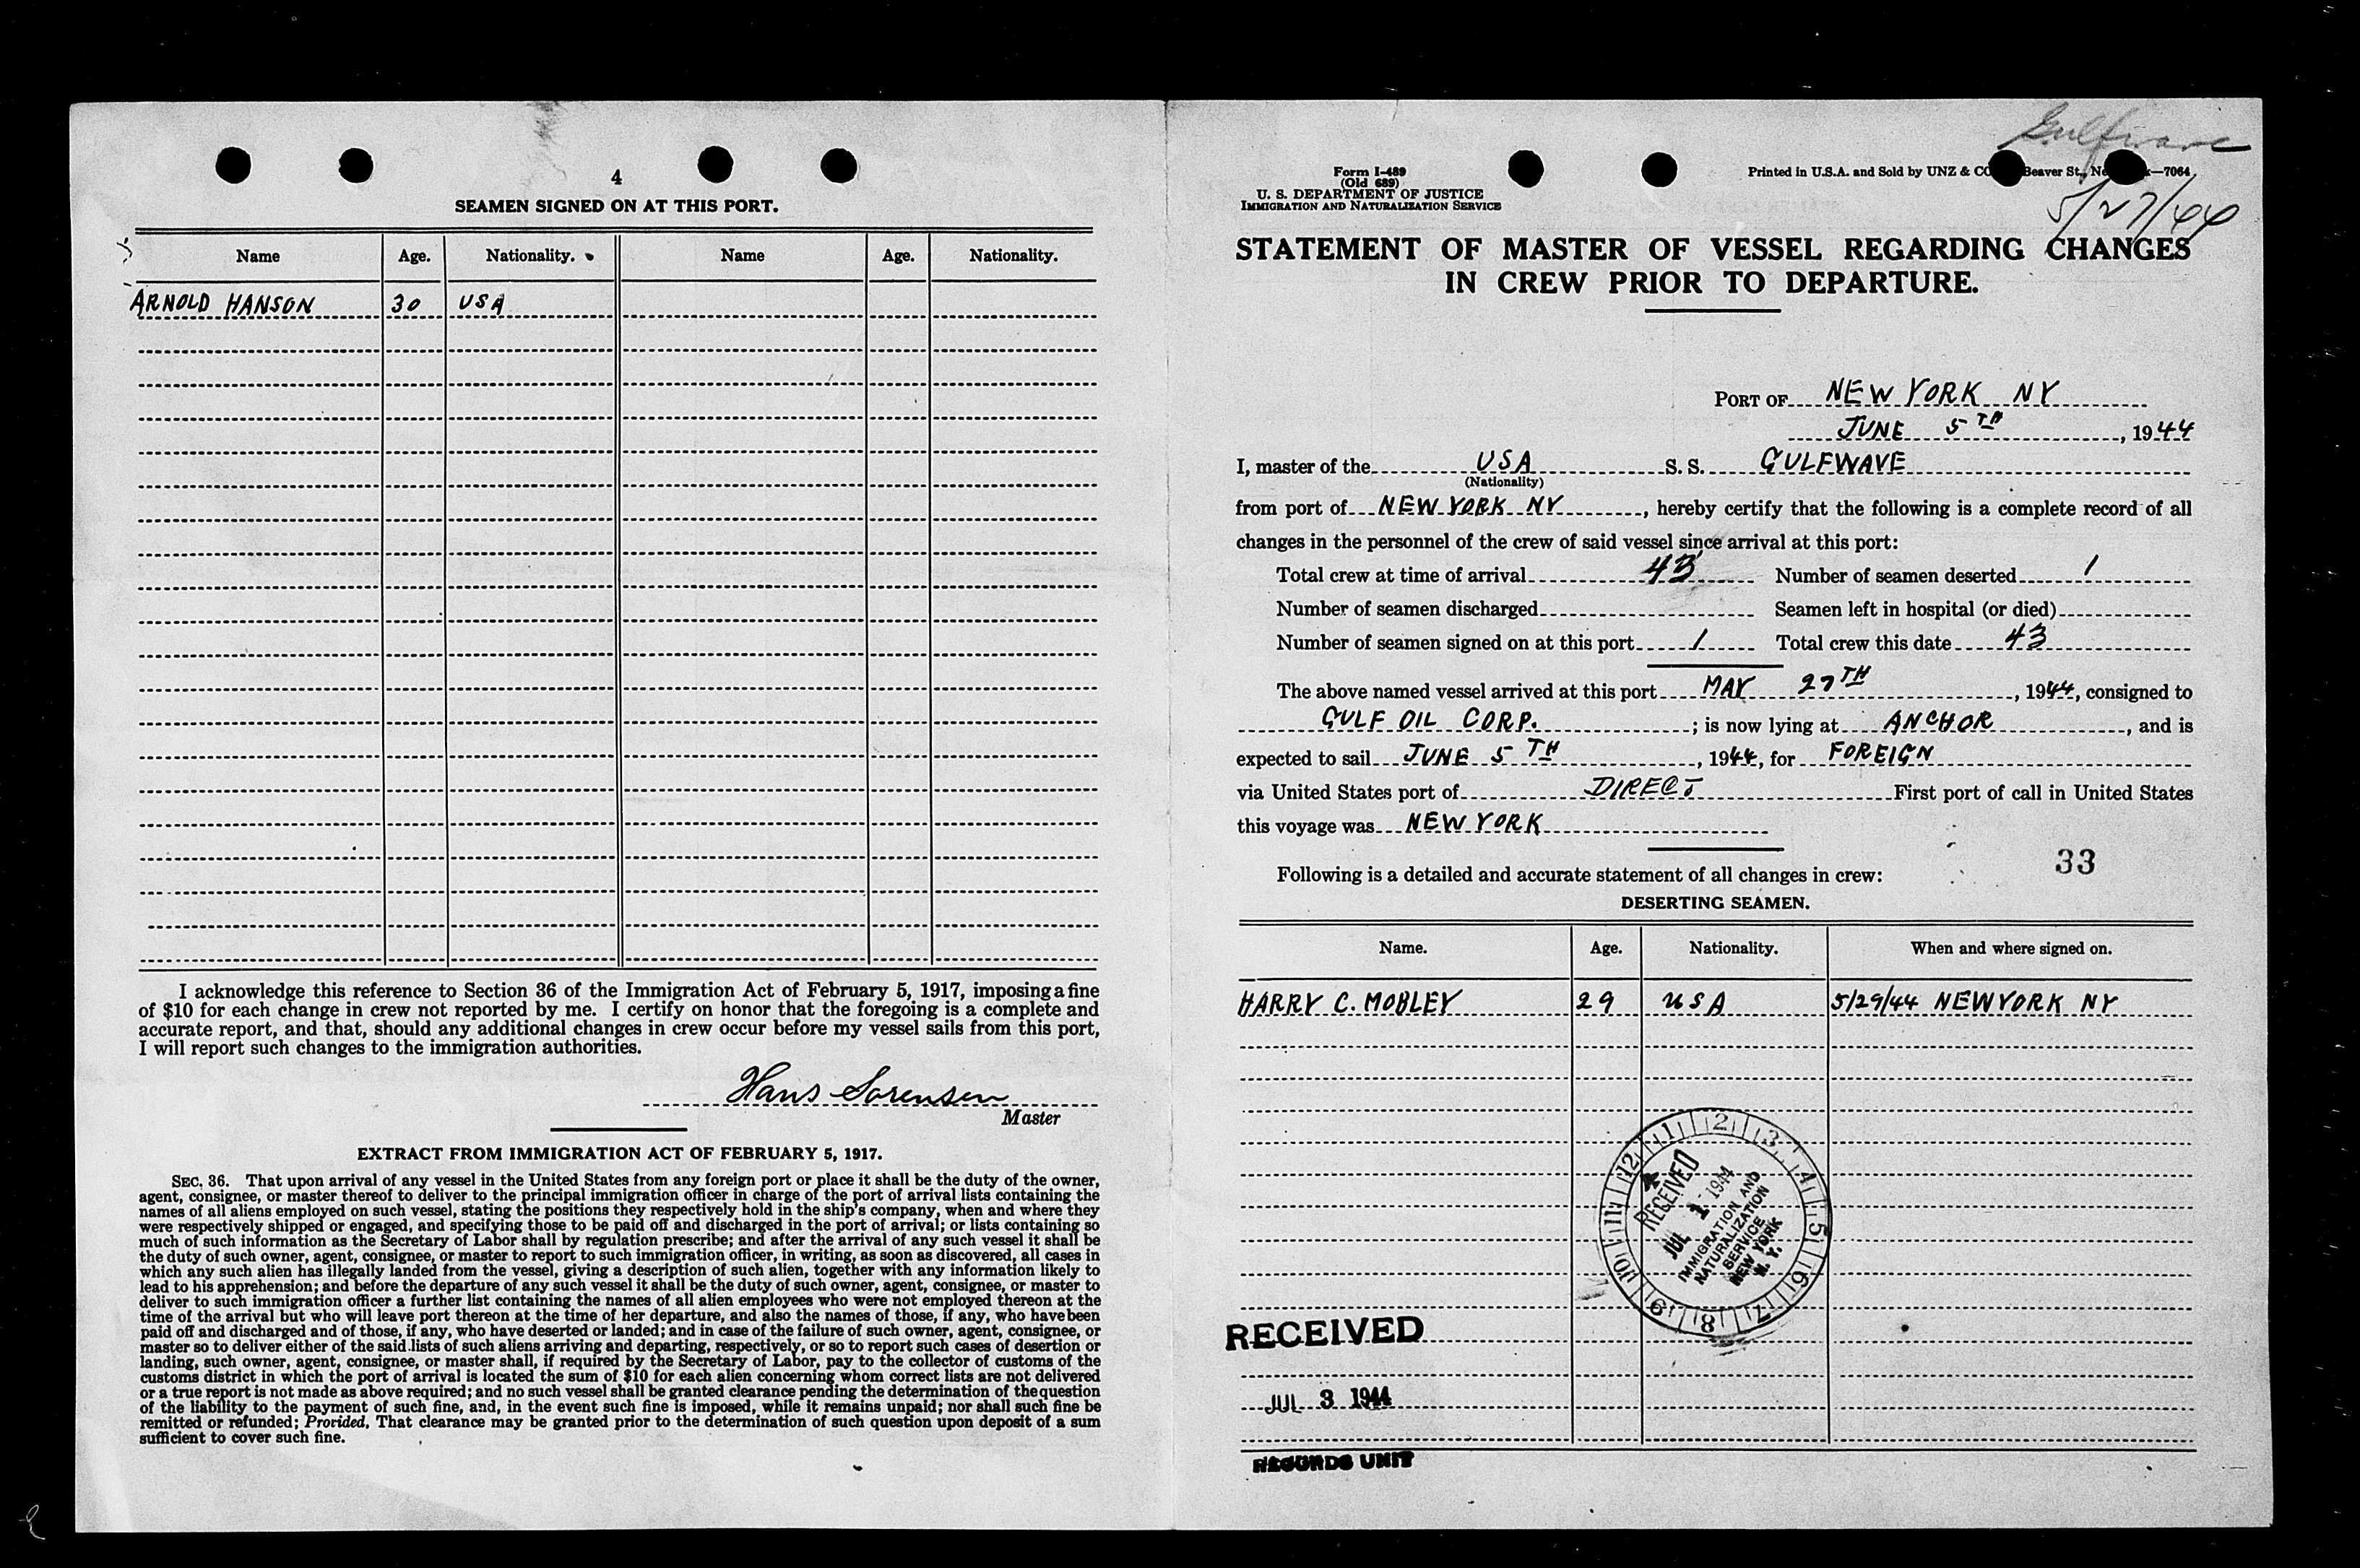 4
SEAMEN SIGNED ON AT THIS PORT.
Name Age. Nationality. Name Age. Nationality.
ARNOLD HANSON 30 USA
I acknowledge this reference to Section 36 of the Immigration Act of February 5, 1917, imposing a fine
of $10 for each change in crew not reported by me. I certify on honor that the foregoing is a complete and
accurate report, and that, should any additional changes in crew occur before my vessel sails from this port,
I will report such changes to the immigration authorities.
Hans Sorensen
Master
EXTRACT FROM IMMIGRATION ACT OF FEBRUARY 5, 1917.
SEC. 36. That upon arrival of any vessel in the United States from any foreign port or place it shall be the duty of the owner,
agent, consignee, or master thereof to deliver to the principal immigration officer in charge of the port of arrival lists containing the
names of all aliens employed on such vessel, stating the positions they respectively hold in the ship's company, when and where they
were respectively shipped or engaged, and specifying those to be paid off and discharged in the port of arrival; or lists containing so
much of such information as the Secretary of Labor shall by regulation prescribe; and after the arrival of any such vessel it shall be
the duty of such owner, agent, consignee, or master to report to such immigration officer, in writing, as soon as discovered, all cases in
which any such alien has illegally landed from the vessel, giving a description of such alien, together with any information likely to
lead to his apprehension; and before the departure of any such vessel it shall be the duty of such owner, agent, consignee, or master to
deliver to such immigration officer a further list containing the names of all alien employees who were not employed thereon at the
time of the arrival but who will leave port thereon at the time of her departure, and also the names of those, if any, who have been
paid off and discharged and of those, if any, who have deserted or landed; and in case of the failure of such owner, agent, consignee, or
master so to deliver either of the said lists of such aliens arriving and departing, respectively, or so to report such cases of desertion or
landing, such owner, agent, consignee, or master shall, if required by the Secretary of Labor, pay to the collector of customs of the
customs district in which the port of arrival is located the sum of $10 for each alien concerning whom correct lists are not delivered
or a true report is not made as above required; and no such vessel shall be granted clearance pending the determination of the question
of the liability to the payment of such fine, and, in the event such fine is imposed, while it remains unpaid; nor shall such fine be
remitted or refunded; Provided, That clearance may be granted prior to the determination of such question upon deposit of a sum
sufficient to cover such fine.
Gulfwave
Form I-489
(Old 689)
U. S. DEPARTMENT OF JUSTICE
IMMIGRATION AND NATURALIZATION SERVICE
Printed in U.S.A. and Sold by UNZ & CO Beaver St., —7064
5/27/44
STATEMENT OF MASTER OF VESSEL REGARDING CHANGES
IN CREW PRIOR TO DEPARTURE.
PORT OF NEW YORK NY
JUNE 5TH, 1944
I, master of the USA S. S. GULFWAVE
(Nationality)
from port of NEW YORK NY, hereby certify that the following is a complete record of all
changes in the personnel of the crew of said vessel since arrival at this port:
Total crew at time of arrival 43 Number of seamen deserted 1
Number of seamen discharged Seamen left in hospital (or died)
Number of seamen signed on at this port 1 Total crew this date 43
The above named vessel arrived at this port MAY 27TH, 1944, consigned to
GULF OIL CORP.; is now lying at ANCHOR, and is
expected to sail JUNE 5TH, 1944, for FOREIGN
via United States port of DIRECT First port of call in United States
this voyage was NEW YORK
33
Following is a detailed and accurate statement of all changes in crew:
DESERTING SEAMEN.
Name. Age. Nationality. When and where signed on.
HARRY C. MOBLEY 29 USA 5/29/44 NEW YORK NY
1 2 3 4 5 6 7 8 9 10 11 12
RECEIVED
JUL 1 - 1944
IMMIGRATION AND
NATURALIZATION
SERVICE
NEW YORK
N. Y.
RECEIVED
JUL 3 1944
RECORDS UNIT